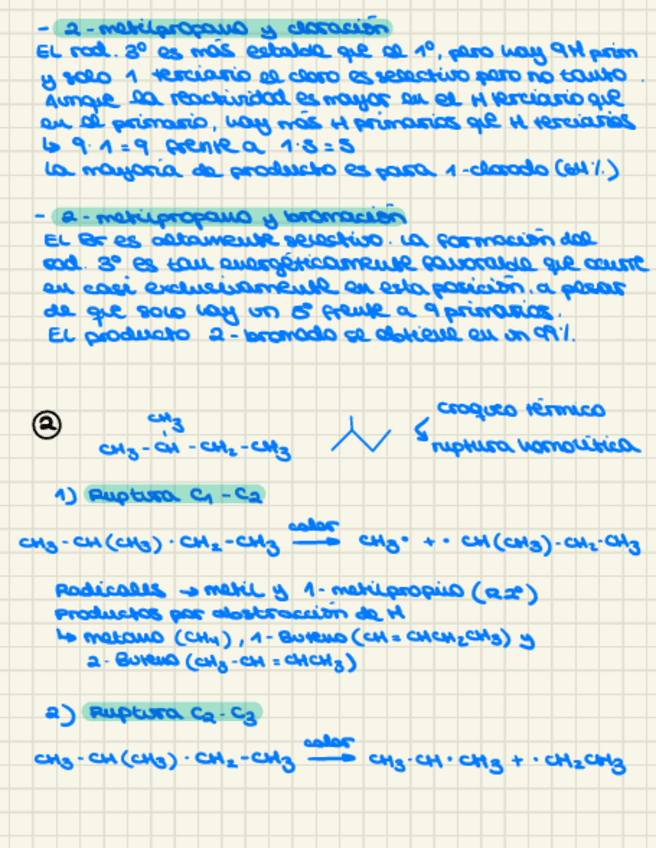 - 2-metilpropano y cloración
El rad. 3º es más estable que el 1º, pero hay 9H prim
y solo 1 terciario el cloro es selectivo pero no tanto.
Aunque la reactividad es mayor en el H terciario que
en el primario, hay más H primarios que H terciarios
↳ 9·1=9 frente a 1·5=5
La mayoría de producto es para 1-clorado (64%)
- 2-metilpropano y bromación
El Br es altamente selectivo. La formación del
rad. 3º es tan energéticamente favorable que ocurre
en casi exclusivamente en esta posición, a pesar
de que solo hay un 3º frente a 9 primarios.
El producto 2-bromado se obtiene en un 99%.
② CH₃
CH₃-CH-CH₂-CH₃
craqueo térmico
ruptura homolítica
1) Ruptura C₁-C₂
CH₃-CH(CH₃)·CH₂-CH₃ calor → CH₃· + ·CH(CH₃)-CH₂-CH₃
Radicales → metil y 1-metilpropilo (R2º)
Productos por abstracción de H
↳ metano (CH₄), 1-Buteno (CH=CHCH₂CH₃) y
2-Buteno (CH₃-CH=CHCH₃)
2) Ruptura C₂-C₃
CH₃-CH(CH₃)·CH₂-CH₃ calor → CH₃-CH·CH₃ + ·CH₂CH₃